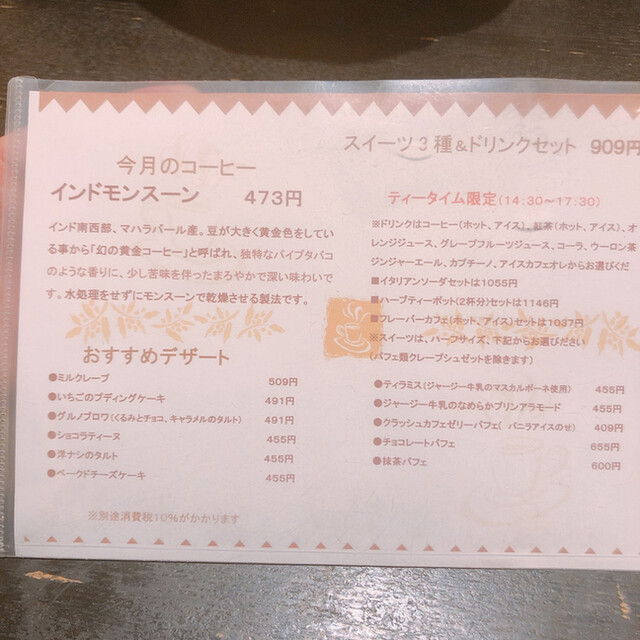 今月のコーヒー
インドモンスーン 473円
インド南西部、マハラバール産。豆が大きく黄金色をしている
事から「幻の黄金コーヒー」と呼ばれ、独特なパイプタバコ
のような香りに、少し苦味を伴ったまろやかで深い味わいで
す。水処理をせずにモンスーンで乾燥させる製法です。
おすすめデザート
●ミルクレープ 509円
●いちごのプディングケーキ 491円
●グルノブロワ(くるみとチョコ、キャラメルのタルト) 491円
●ショコラティーヌ 455円
●洋ナシのタルト 455円
●ベークドチーズケーキ 455円
※別途消費税10%がかかります
スイーツ3種&ドリンクセット 909円
ティータイム限定(14:30〜17:30)
※ドリンクはコーヒー(ホット、アイス)、紅茶(ホット、アイス)、オ
レンジジュース、グレープフルーツジュース、コーラ、ウーロン茶
ジンジャーエール、カプチーノ、アイスカフェオレからお選びくだ
■イタリアンソーダセットは1055円
■ハーブティーポット(2杯分)セットは1146円
■フレーバーカフェ(ホット、アイス)セットは1037円
※スイーツは、ハーフサイズ、下記からお選びください
(パフェ類クレープシュゼットを除きます)
●ティラミス(ジャージー牛乳のマスカルポーネ使用) 455円
●ジャージー牛乳のなめらかプリンアラモード 455円
●クラッシュカフェゼリーパフェ( バニラアイスのせ) 409円
●チョコレートパフェ 655円
●抹茶パフェ 600円